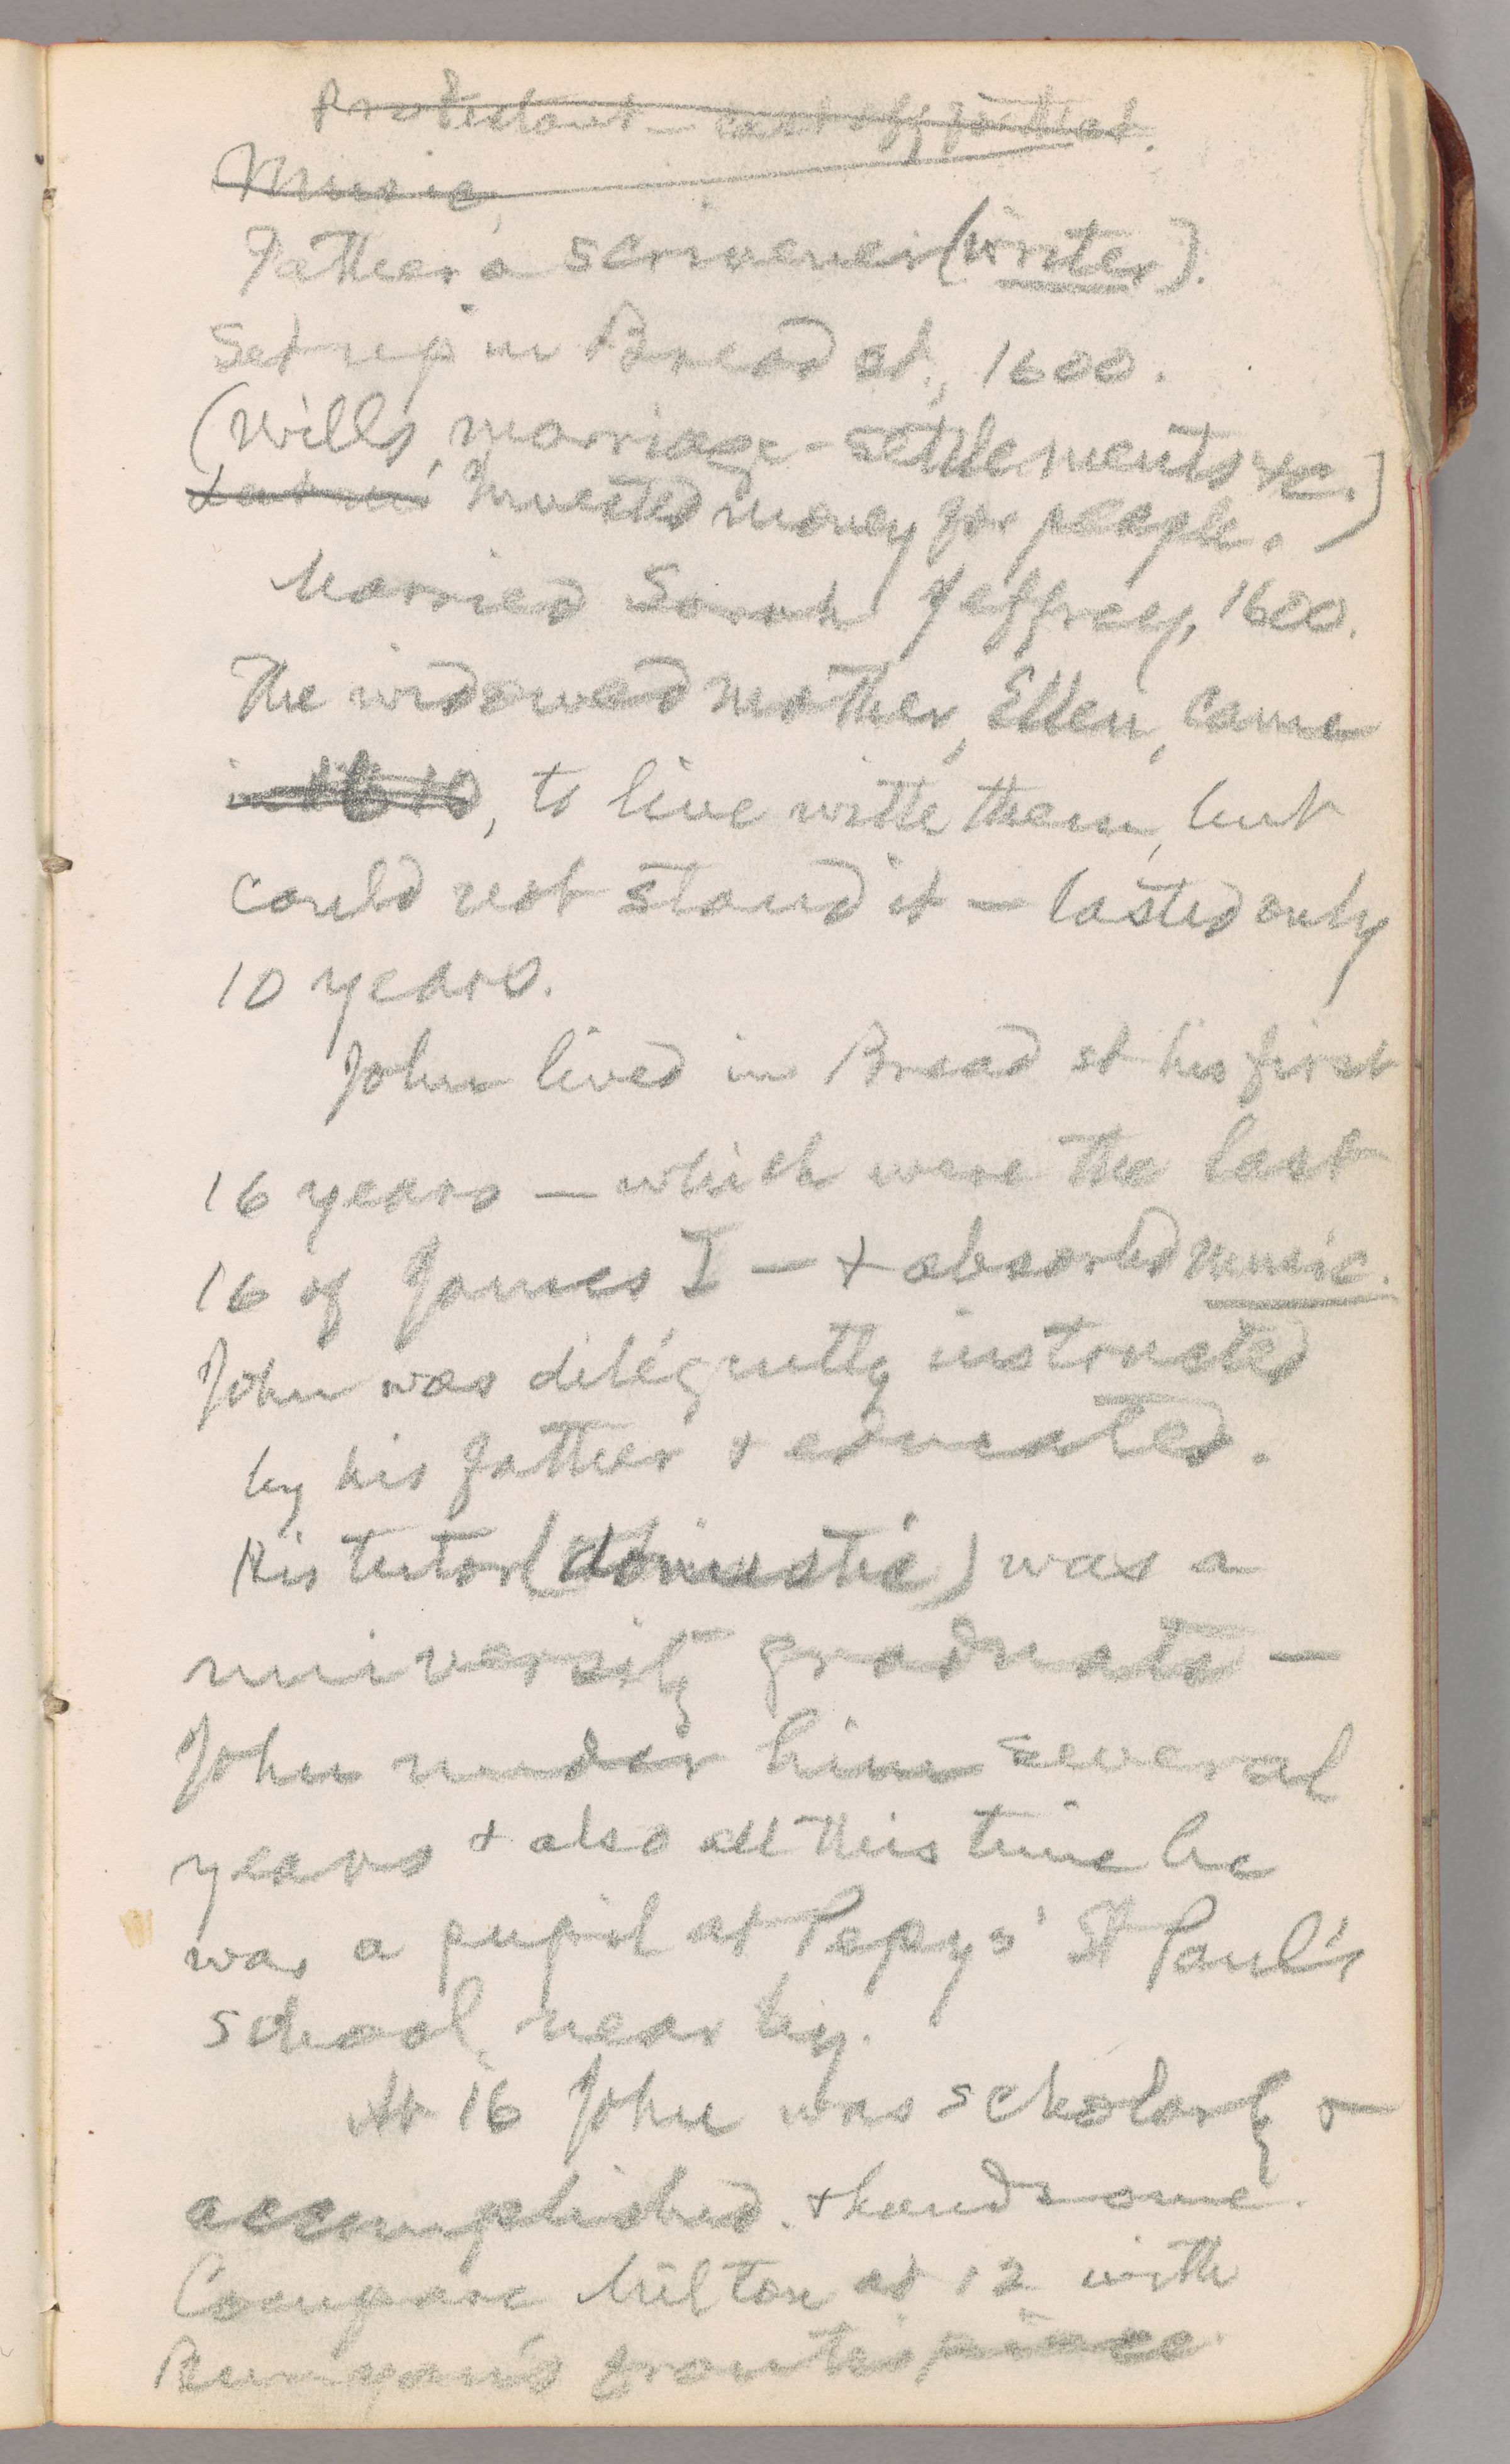 Protestant — cast off for that.
Music
Father a scrivener (writer).
Set up in Bread st., 1600.
(Wills, marriage-settlements &c.)
Invested money for people.)
Married Sarah Jeffrey, 1600.
The widowed mother, Ellen, came
in 1610, to live with them, but
could not stand it — lasted only
10 years.
John lived in Bread st his first
16 years — which were the last
16 of James I — & absorbed music.
John was diligently instructed
by his father & educated.
His tutor (domestic) was a
university graduate —
John under him several
years & also all this time he
was a pupil at Pepys' St Paul's
school, near by.
At 16 John was scholarly &
accomplished. & handsome.
Compare Milton at 12 with
Bunyan's frontispiece.